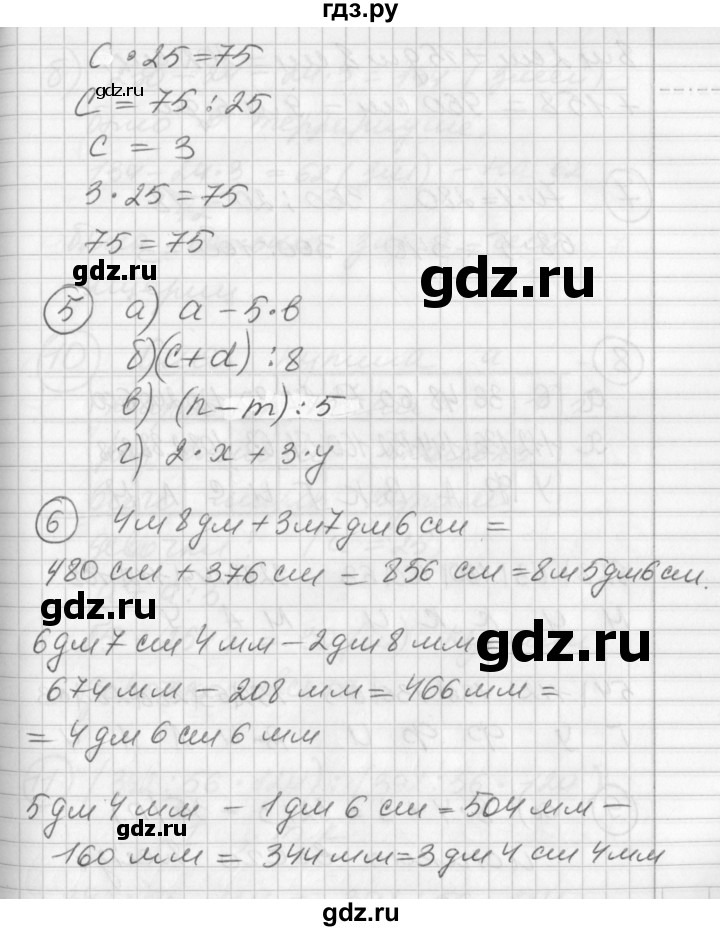 гдз.ру
с · 25 = 75
gdz.ru
с = 75 : 25
с = 3
3 · 25 = 75
75 = 75
gdz.ru
gdz.ru
5 а) а - 5·в
б) (c+d) : 8
в) (n-m) : 5
г) 2·x + 3·y
6 4м 8дм + 3м 7дм 6см =
480 см + 376 см = 856 см = 8м 5дм 6см.
gdz.ru
6дм 7см 4мм - 2дм 8мм =
gdz.ru
674 мм - 208 мм = 466 мм =
= 4дм 6см 6мм
5дм 4мм - 1дм 6см = 504 мм -
gdz.ru
160 мм = 344 мм = 3дм 4см 4мм
gdz.ru